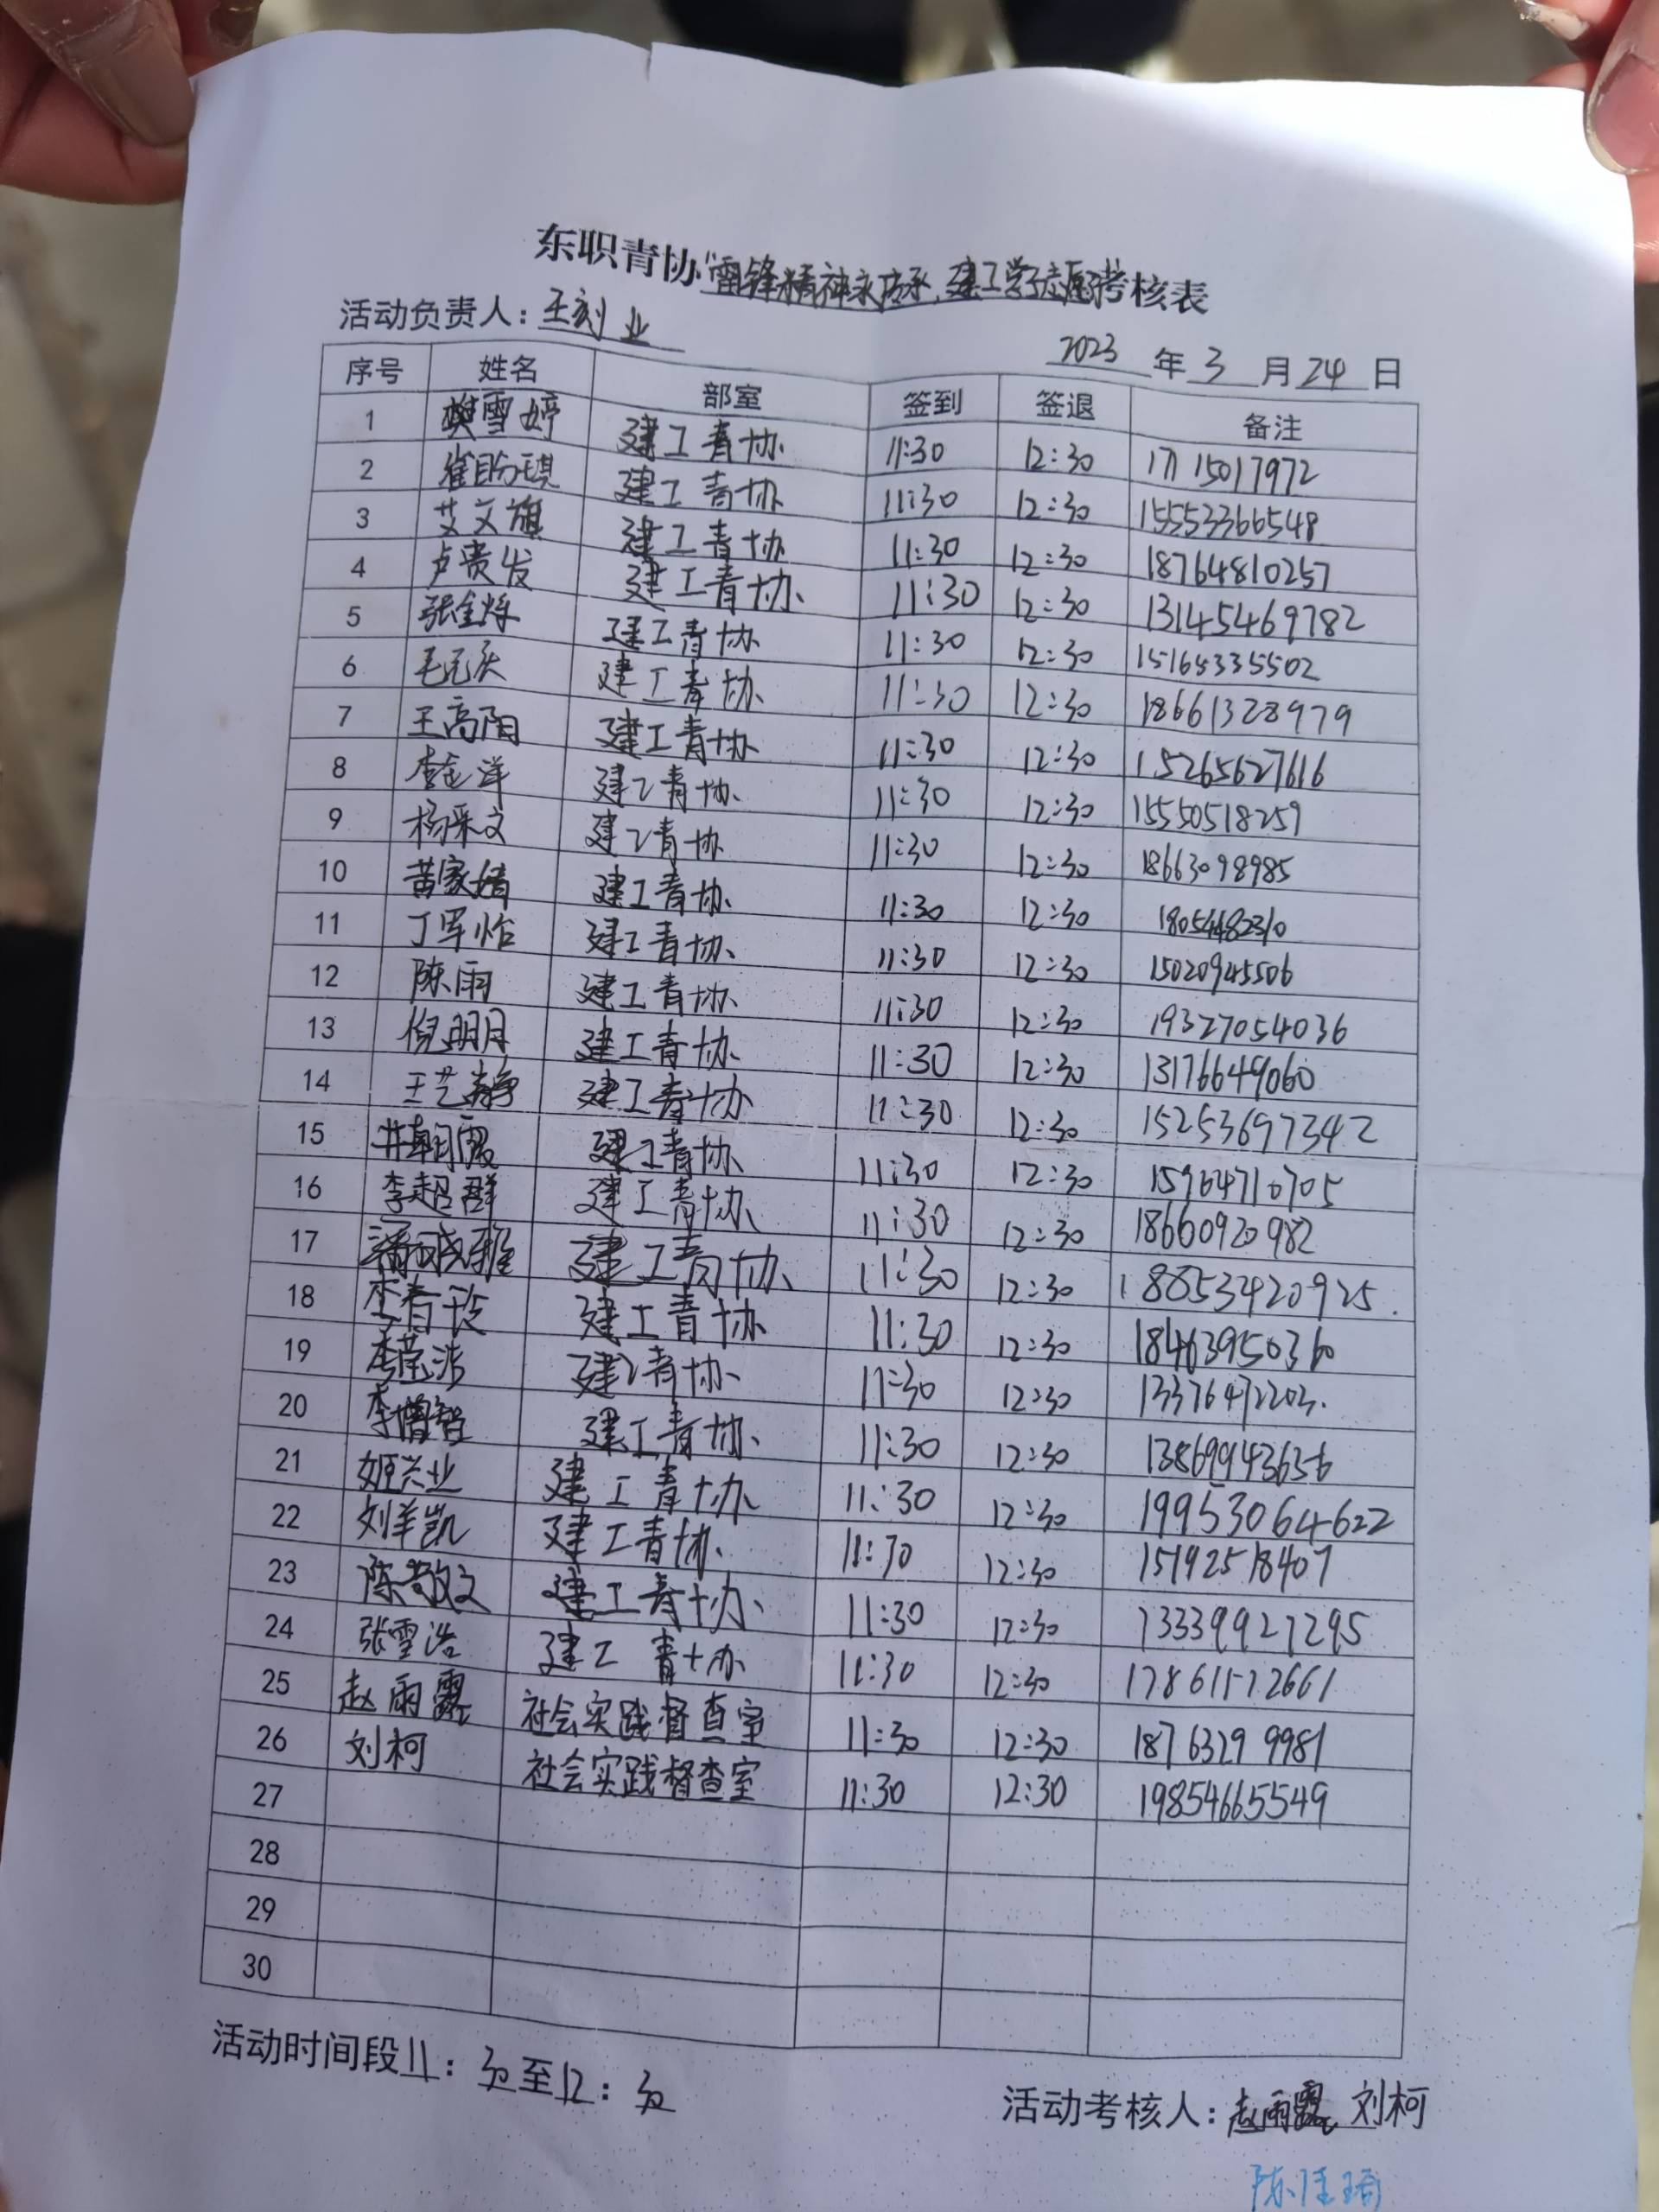 东职青协“雷锋精神永传承,建工学子志愿行”考核表
活动负责人：王刻业
2023年3月24日
序号 姓名 部室 签到 签退 备注
1 樊雪婷 建工青协 11:30 12:30 17115017972
2 崔盼琪 建工青协 11:30 12:30 15553366548
3 艾文旗 建工青协 11:30 12:30 18764810257
4 卢贵发 建工青协 11:30 12:30 131454469782
5 张金烁 建工青协 11:30 12:30 15165335502
6 毛元庆 建工青协 11:30 12:30 18661328979
7 王高阳 建工青协 11:30 12:30 15265627616
8 李金洋 建工青协 11:30 12:30 15550518259
9 杨采文 建工青协 11:30 12:30 18663098985
10 苗家婧 建工青协 11:30 12:30 18054482310
11 丁军怡 建工青协 11:30 12:30 15020945506
12 陈雨 建工青协 11:30 12:30 19327054036
13 倪明月 建工青协 11:30 12:30 13176649060
14 王艺静 建工青协 11:30 12:30 15253697342
15 井朝霞 建工青协 11:30 12:30 15964710705
16 李超群 建工青协 11:30 12:30 18660920982
17 潘成雅 建工青协 11:30 12:30 18853420925.
18 李春 建工青协 11:30 12:30 18463950360
19 李莹涉 建工青协 11:30 12:30 13376472203.
20 李增智 建工青协 11:30 12:30 13869943656
21 姬兴业 建工青协 11:30 12:30 19953064622
22 刘羊凯 建工青协 11:30 12:30 15192518407
23 陈敬文 建工青协 11:30 12:30 13339927295
24 张雪浩 建工青协 11:30 12:30 17861572661
25 赵雨露 社会实践督查室 11:30 12:30 18763299981
26 刘柯 社会实践督查室 11:30 12:30 19854665549
27
28
29
30
活动时间段11：30至12：30
活动考核人：赵雨露 刘柯
陈佳琦